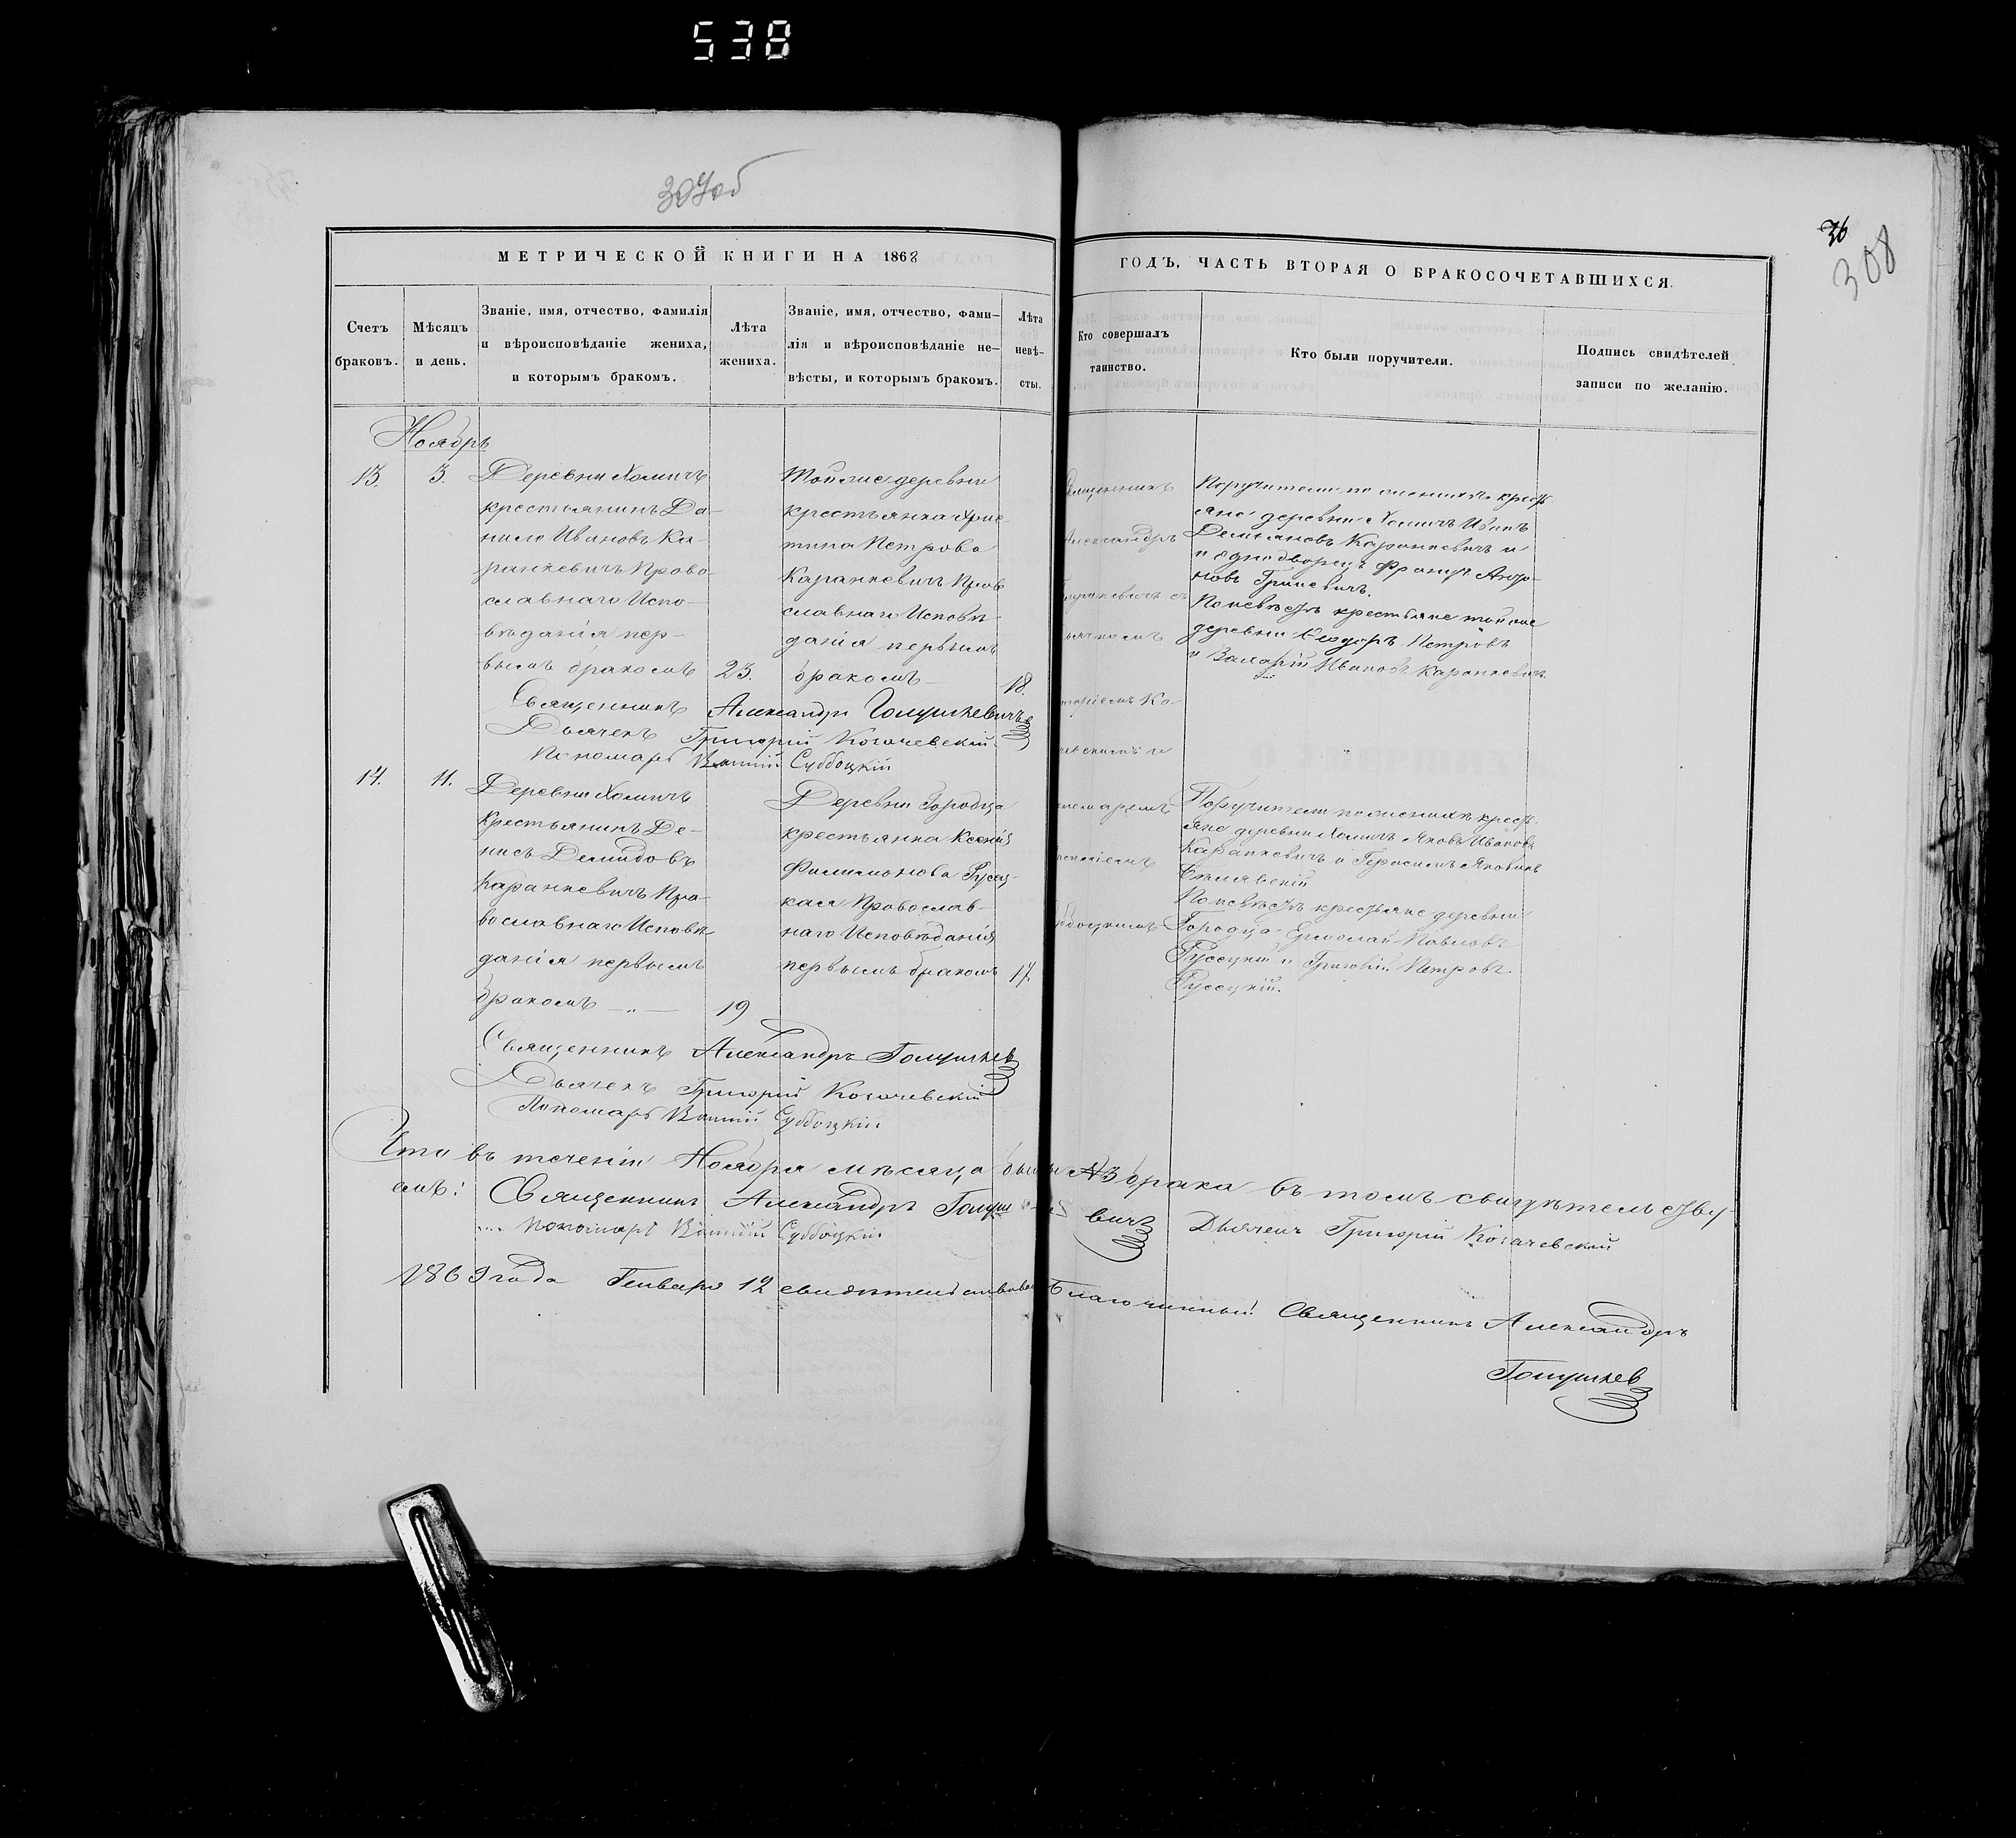 538
307об
36
308
МЕТРИЧЕСКОЙ КНИГИ НА 1868
ГОДЪ, ЧАСТЬ ВТОРАЯ О БРАКОСОЧЕТАВШИХСЯ.
Счетъ
браковъ.
Мѣсяцъ
и день.
Званіе, имя, отчество, фамилія
и вѣроисповѣданіе жениха,
и которымъ бракомъ.
Лѣта
жениха.
Званіе, имя, отчество, фами–
лія и вѣроисповѣданіе не–
вѣсты, и которымъ бракомъ.
Лѣта
невѣ-
сты.
Кто совершалъ
таинство.
Кто были поручители.
Подпись свидѣтелей
записи по желанію.
Ноябрь
13.
3.
Деревни Хомичъ
крестьянинъ Да-
нило Ивановъ Ка-
ранкевичъ Право-
славнаго Испо-
вѣданія пер-
вымъ бракомъ
23.
Тойже деревни
крестьянка Хрис-
тина Петрова
Каранкевичъ Право
славнаго Исповѣ
данія первымъ
бракомъ —
18.
Поручители по женихѣ кресть
яне деревни Хомичъ Иванъ
Демьяновъ Каранкевичъ и
и однодворецъ Францъ Антo-
новъ Гриневичъ.
По невѣстѣ крестьяне тойже
деревни Ѳеодоръ Петровъ
и Захарій Ивановъ Каранкевичъ
Священникъ Александръ Голушкевичъ
Дьячекъ Григорій Когачевскій
Пономарь Суббоцкій
14.
11.
Деревни Хомичъ
Крестьянинъ Де-
нисъ Демидовъ
Каранкевичъ Пра-
вославнаго Исповѣ
данія первымъ
бракомъ — „ —
19
Деревни Городца
крестьянка Ксенія
Филимонова Русец-
кая Православ-
наго Исповѣданія
первымъ бракомъ
17.
Поручители по женихѣ кресть
яне деревни Хомичъ Яковъ Ивановъ
Каранкевичъ и Герасимъ Яковлевъ
По невѣстѣ крестьяне деревни
Городца Ермолай Павловъ
Русецкій и Григорій Петровъ
Русецкій.
Священникъ
Александръ
съ
Дьячкомъ
Григоріемъ Ко-
гачевскимъ и
Пономаремъ
Суббоцкимъ
Священникъ Александръ Голушкев
Дьячекъ Григорій Когачевскій
Пономарь Суббоцкій
Что въ теченіи Ноября мѣсяца было брака въ томъ свидѣтельству-
емъ: Священникъ Александръ Голушкевичъ Дьячекъ Григорій Когачевскій
Пономарь Суббоцкій
1869 года Генваря 12 свидѣтельствовалъ Благочинный Священникъ Александръ
Голушкев